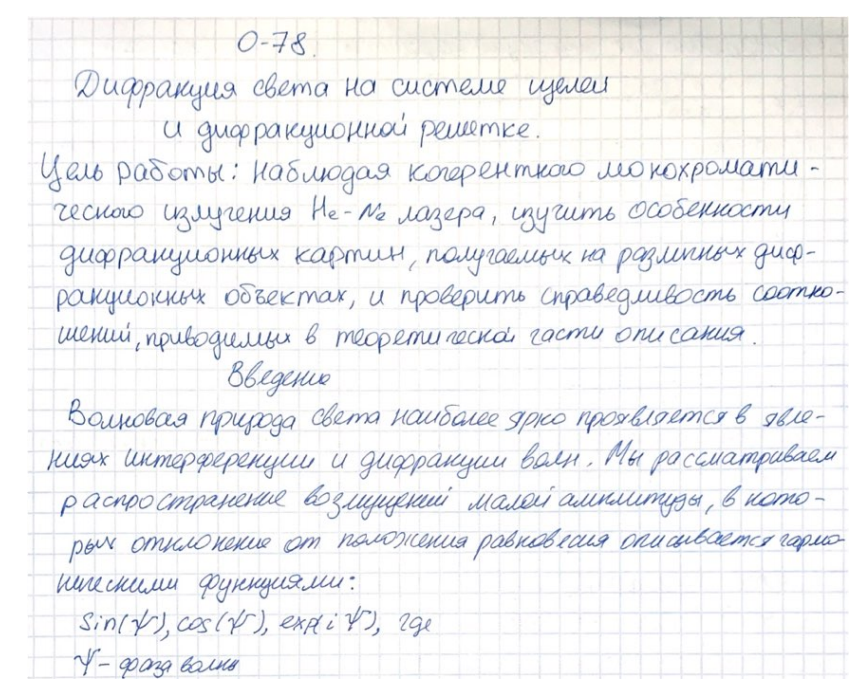 О-78.
Дифракция света на системе щелей
и дифракционной решетке.
Цель работы: наблюдая когерентного монохромати-
ческого излучения He-Ne лазера, изучить особенности
дифракционных картин, получаемых на различных диф-
ракционных объектах, и проверить справедливость соотно-
шений, приводимых в теоретической части описания.
Введение
Волновая природа света наиболее ярко проявляется в явле-
ниях интерференции и дифракции волн. Мы рассматриваем
распространение возмущений малой амплитуды, в кото-
рых отклонение от положения равновесия описывается гармо
ническими функциями:
Sin(Ψ), cos(Ψ), exp(iΨ), где
Ψ - фаза волны